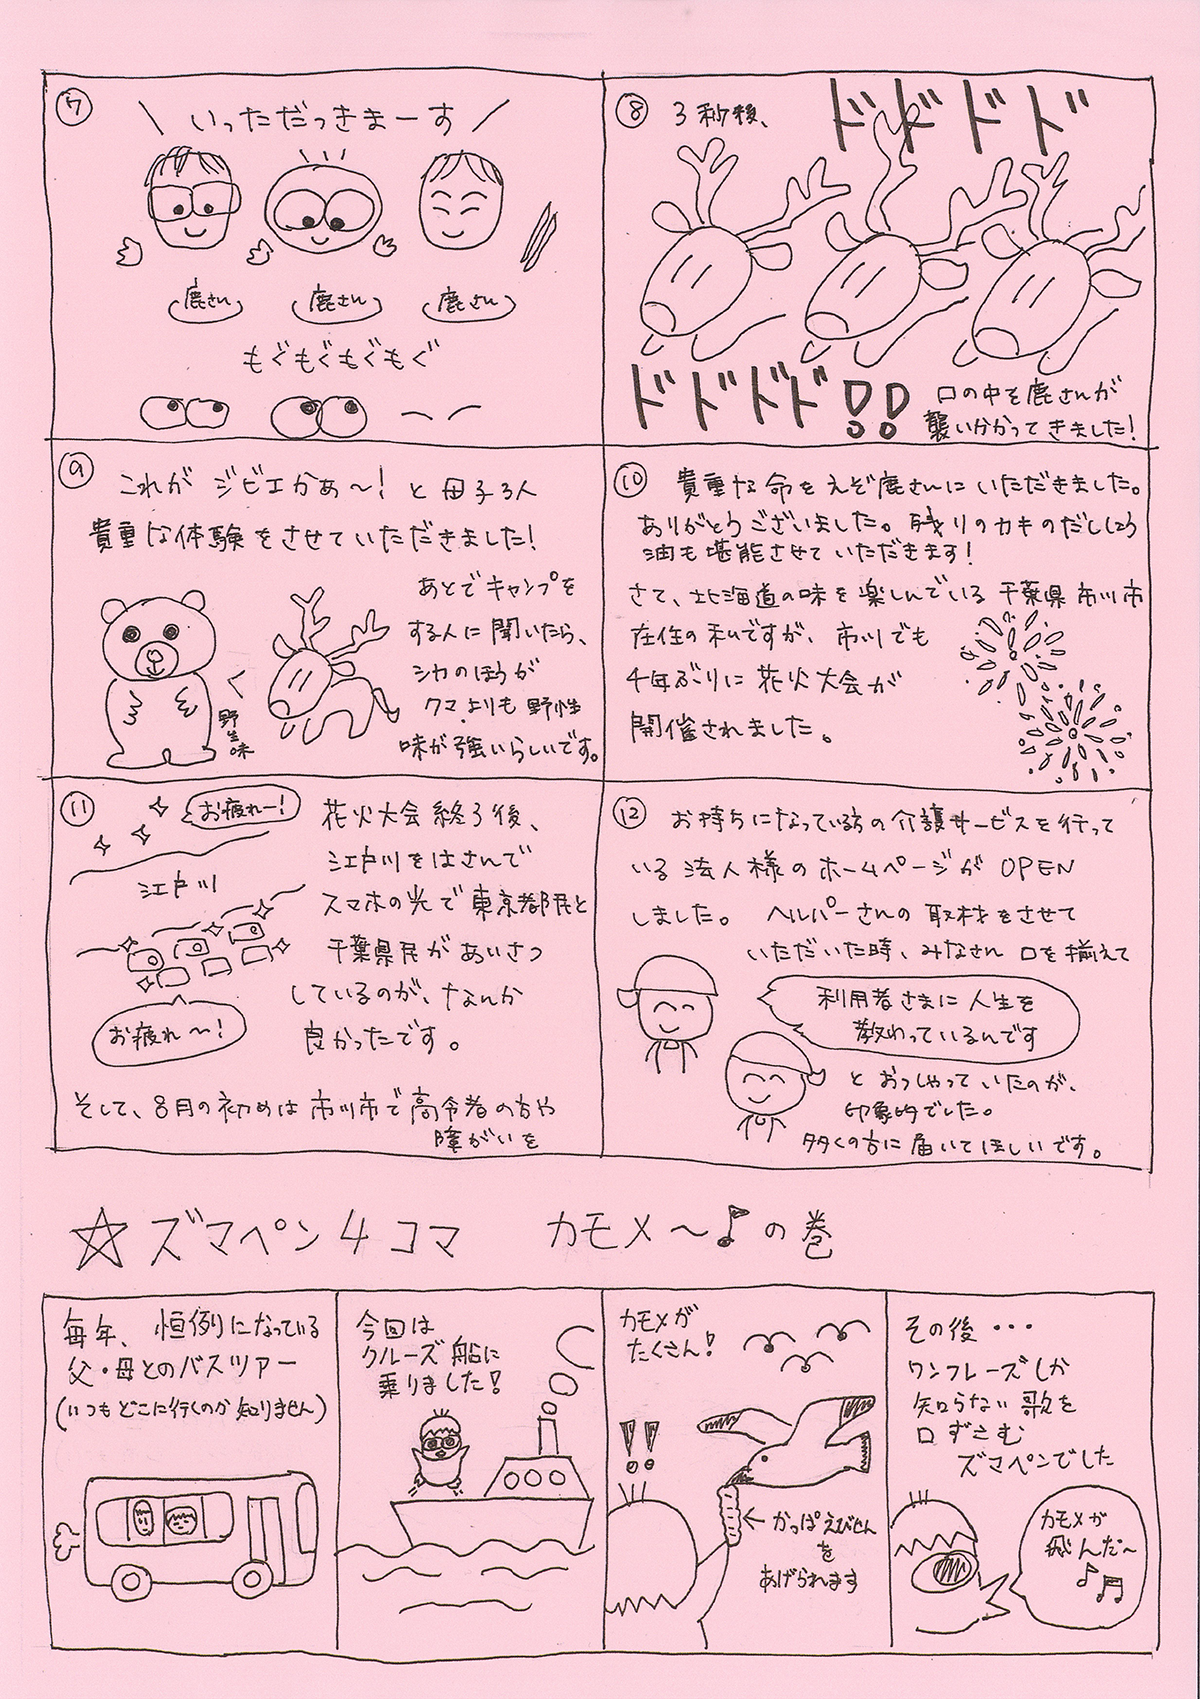 ⑦
いっただっきまーす
鹿さん
鹿さん
鹿さん
もぐもぐもぐもぐ
⑧
3秒後、
ドドドド
ドドドド!!
口の中を鹿さんが
襲い分かってきました!
⑨
これが ジビエかあ〜! と 母子3人
貴重な体験をさせていただきました!
あとでキャンプを
する人に聞いたら、
シカのほうが
クマよりも野性
味が強いらしいです。
く
野生味
⑩
貴重な命をえぞ鹿さんにいただきました。
ありがとうございました。残りのカキのだししょう
油も堪能させていただきます!
さて、北海道の味を楽しんでいる千葉県市川市
在住の私ですが、市川でも
4年ぶりに花火大会が
開催されました。
⑪
お疲れー!
江戸川
お疲れ〜!
花火大会終了後、
江戸川をはさんで
スマホの光で東京都民と
千葉県民があいさつ
しているのが、なんか
良かったです。
そして、8月の初めは市川市で高令者の方や
障がいを
⑫
お持ちになっている方の介護サービスを行って
いる法人様のホームページがOPEN
しました。 ヘルパーさんの取材をさせて
いただいた時、みなさん口を揃えて
利用者さまに人生を
教わっているんです
とおっしゃっていたのが、
印象的でした。
多くの方に届いてほしいです。
☆ズマペン4コマ カモメ〜♪の巻
毎年、恒例になっている
父・母とのバスツアー
(いつもどこに行くのか知りません)
今回は
クルーズ船に
乗りました!
カモメが
たくさん!
!!
←かっぱえびせん
を
あげられます
その後・・・
ワンフレーズしか
知らない歌を
口ずさむ
ズマペンでした
カモメが
飛んだ〜
♪♫